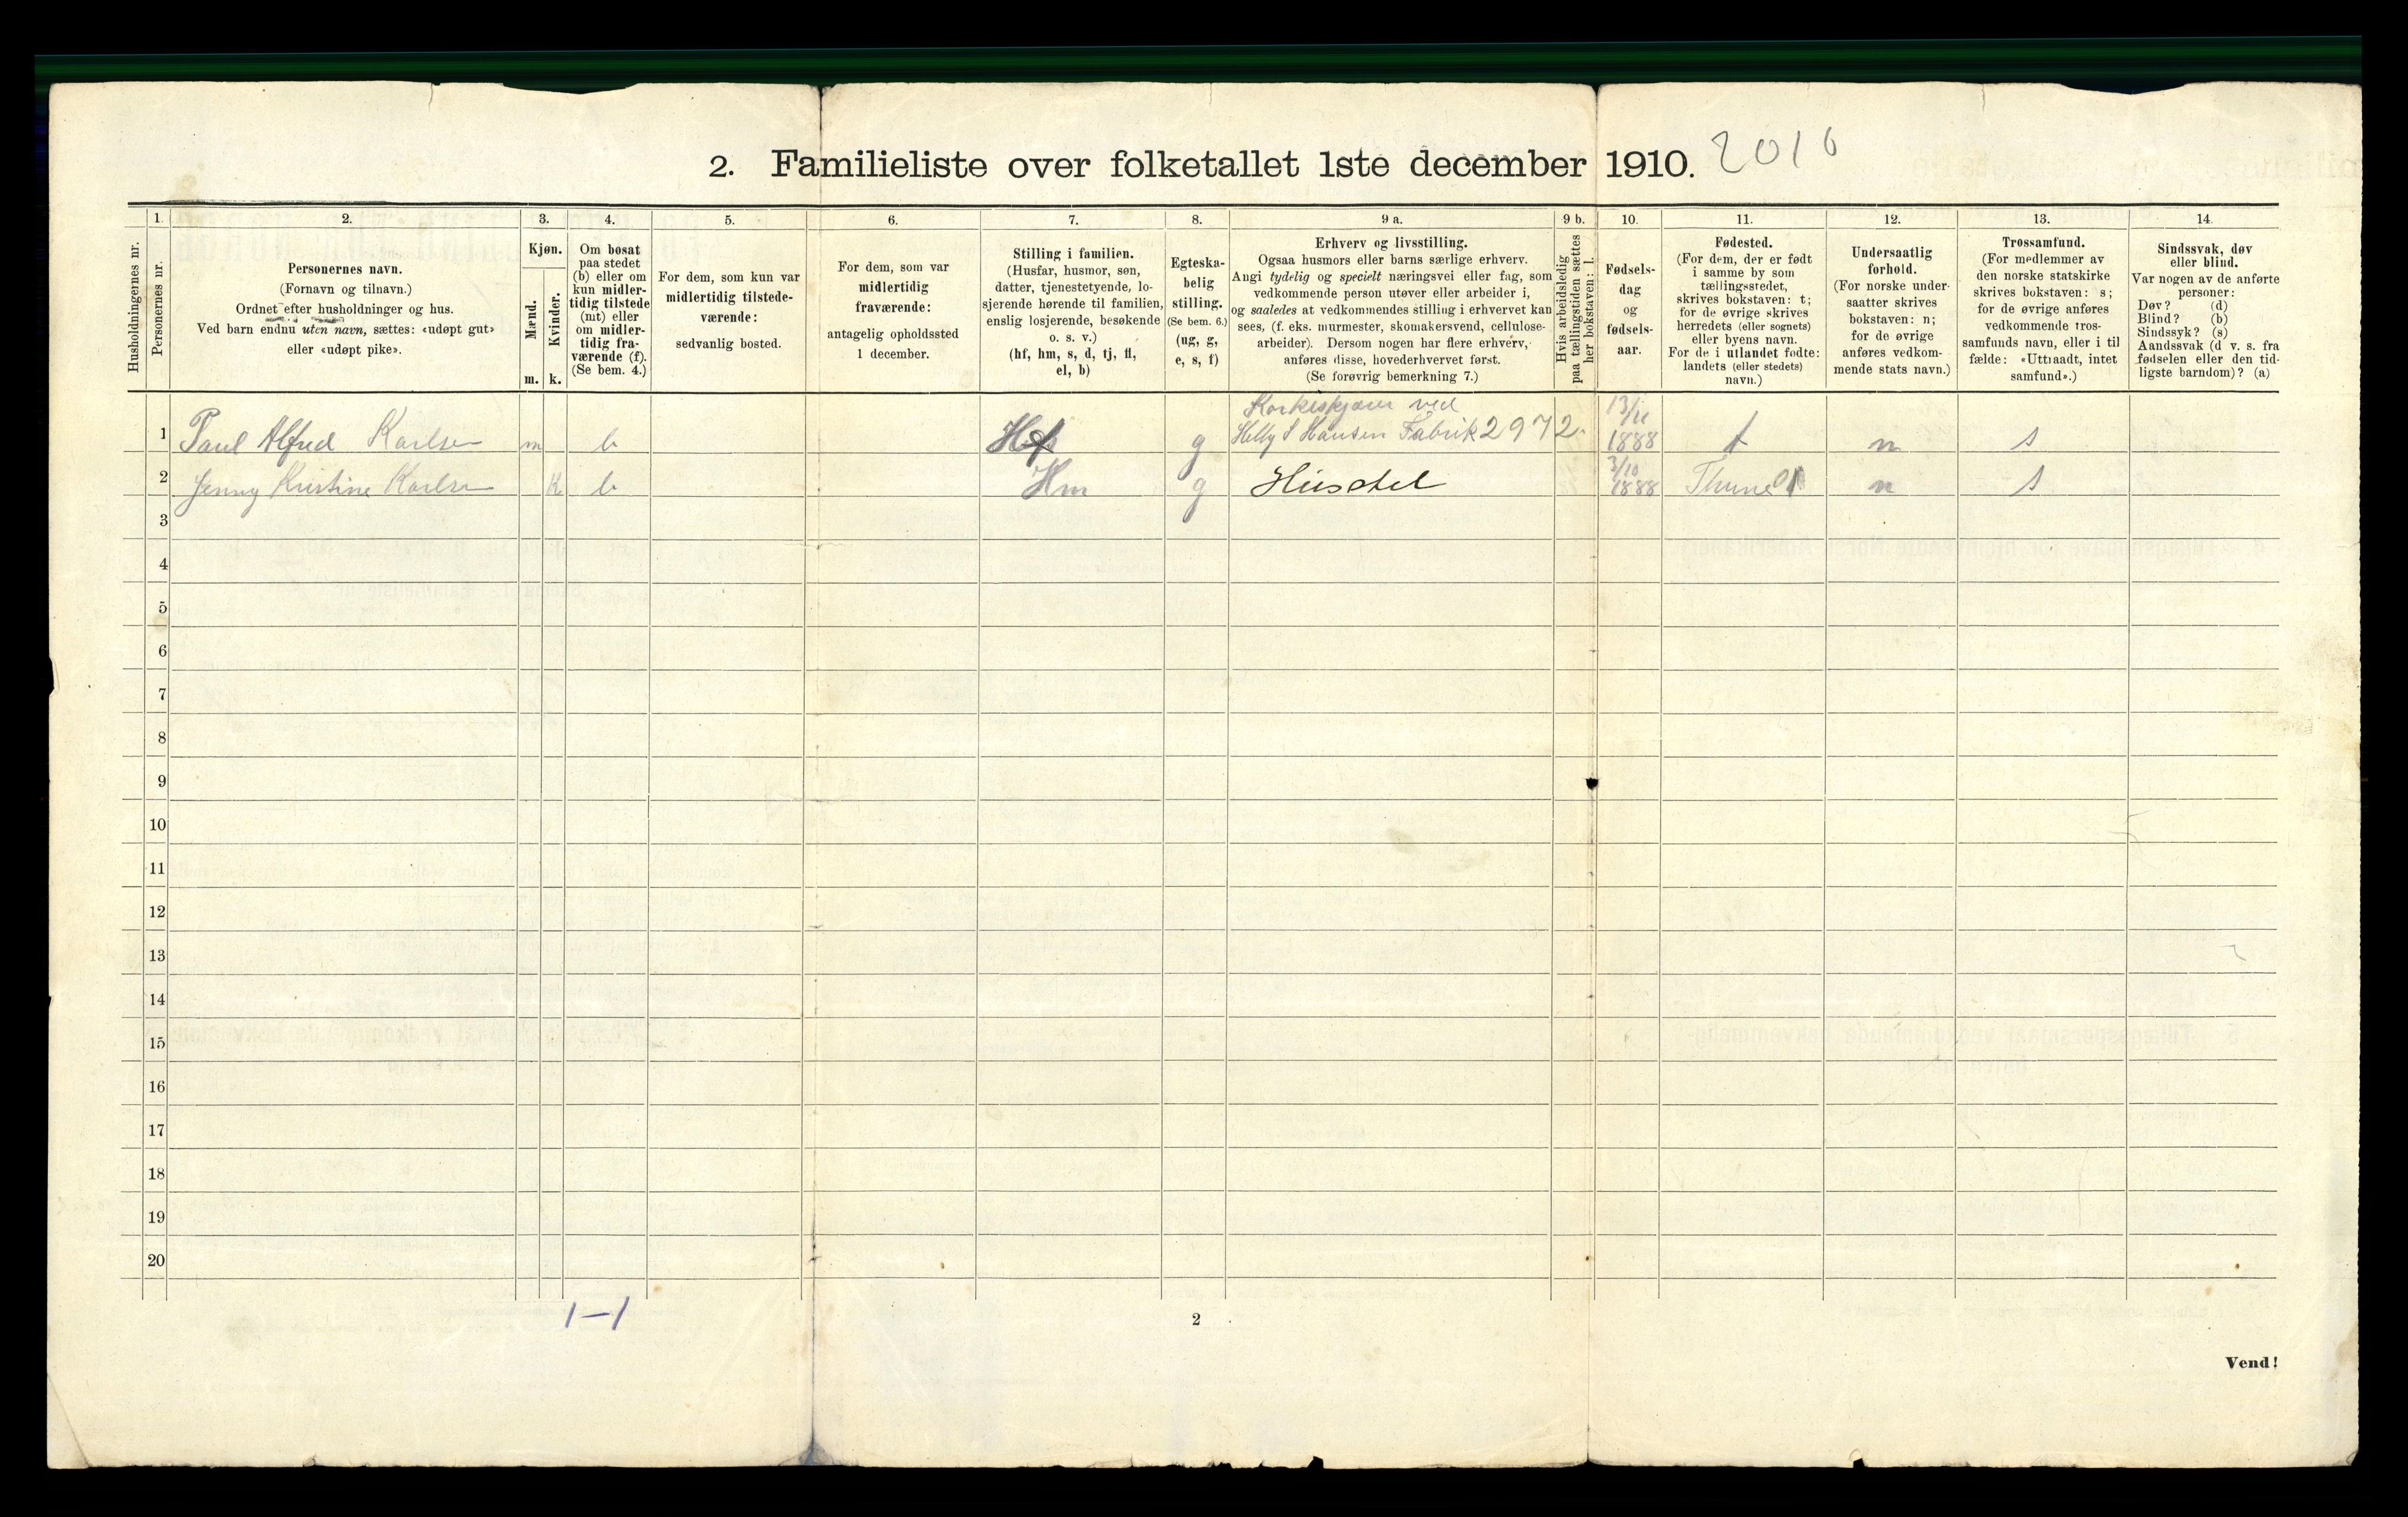 2. Familieliste over folketallet 1ste december 1910. 2016
Husholdningernes nr.
1.
Personernes nr.
2.
Personernes navn.
(Fornavn og tilnavn.)
Ordnet efter husholdninger og hus.
Ved barn endnu uten navn, sættes: «udøpt gut»
eller «udøpt pike».
3.
Kjøn.
Mænd.
m.
Kvinder.
k.
4.
Om bosat
paa stedet
(b) eller om
kun midler-
tidig tilstede
(mt) eller
om midler-
tidig fra-
værende (f).
(Se bem. 4.)
5.
For dem, som kun var
midlertidig tilstede-
værende:
sedvanlig bosted.
6.
For dem, som var
midlertidig
fraværende:
antagelig opholdssted
1 december.
7.
Stilling i familien.
(Husfar, husmor, søn,
datter, tjenestetyende, lo-
sjerende hørende til familien,
enslig losjerende, besøkende
o. s. v.)
(hf, hm, s, d, tj, fl,
el, b)
8.
Egteska-
belig
stilling.
(Se bem. 6.)
(ug, g,
e, s, f)
9 a.
Erhverv og livsstilling.
Ogsaa husmors eller barns særlige erhverv.
Angi tydelig og specielt næringsvei eller fag, som
vedkommende person utøver eller arbeider i,
og saaledes at vedkommendes stilling i erhvervet kan
sees, (f. eks. murmester, skomakersvend, cellulose-
arbeider). Dersom nogen har flere erhverv,
anføres disse, hovederhvervet først.
(Se forøvrig bemerkning 7.)
9 b.
Hvis arbeidsledig
paa tællingstiden sættes
her bokstaven: l.
10.
Fødsels-
dag
og
fødsels-
aar.
11.
Fødested.
(For dem, der er født
i samme by som
tællingsstedet,
skrives bokstaven: t;
for de øvrige skrives
herredets (eller sognets)
eller byens navn.
For de i utlandet fødte:
landets (eller stedets)
navn.)
12.
Undersaatlig
forhold.
(For norske under-
saatter skrives
bokstaven: n;
for de øvrige
anføres vedkom-
mende stats navn.)
13.
Trossamfund.
(For medlemmer av
den norske statskirke
skrives bokstaven: s;
for de øvrige anføres
vedkommende tros-
samfunds navn, eller i til
fælde: «Uttraadt, intet
samfund».)
14.
Sindssvak, døv
eller blind.
Var nogen av de anførte
personer:
Døv? (d)
Blind? (b)
Sindssyk? (s)
Aandssvak (d v. s. fra
fødselen eller den tid-
ligste barndom)? (a)
1 Paul Alfred Karlsen m b Hf g Korkeskjærer ved Helly J Hansen Fabrik 2972 1888 t n s
2 Jenny Kristine Karlsen k b Hm g Husstel 3/10 1888 n s
3
4
5
6
7
8
9
10
11
12
13
14
15
16
17
18
19
20
1-1
2
Vend!